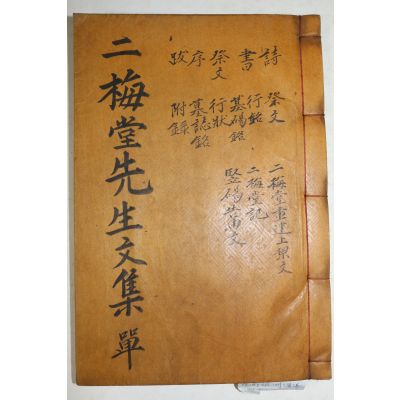 二梅堂先生文集 單
詩
書
祭文
序
跋
祭文
行錄
墓碣銘
行狀
墓誌銘
附錄
二梅堂重建上樑文
二梅堂記
竪碣告文